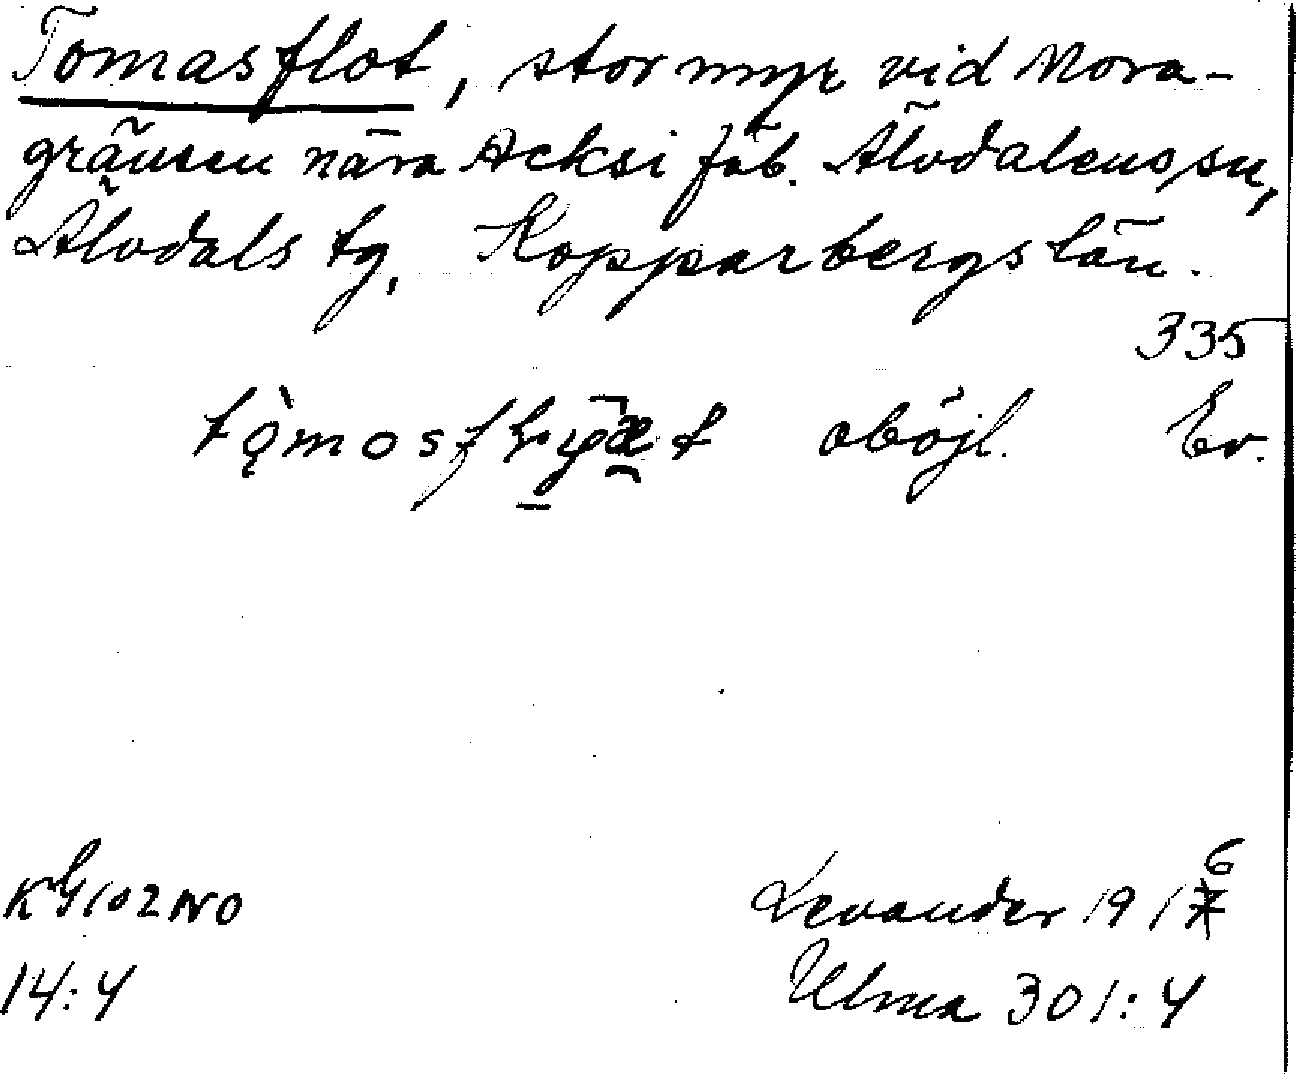 Tomasflot, stor myr vid Mora-
gränsen nära Acksi fäb. Älvdalens sn,
Älvdals tg, Kopparbergs län.
335
oböjl. Ev.
KG 102 NO
14:4
Levander 1916
Ulma 301:4